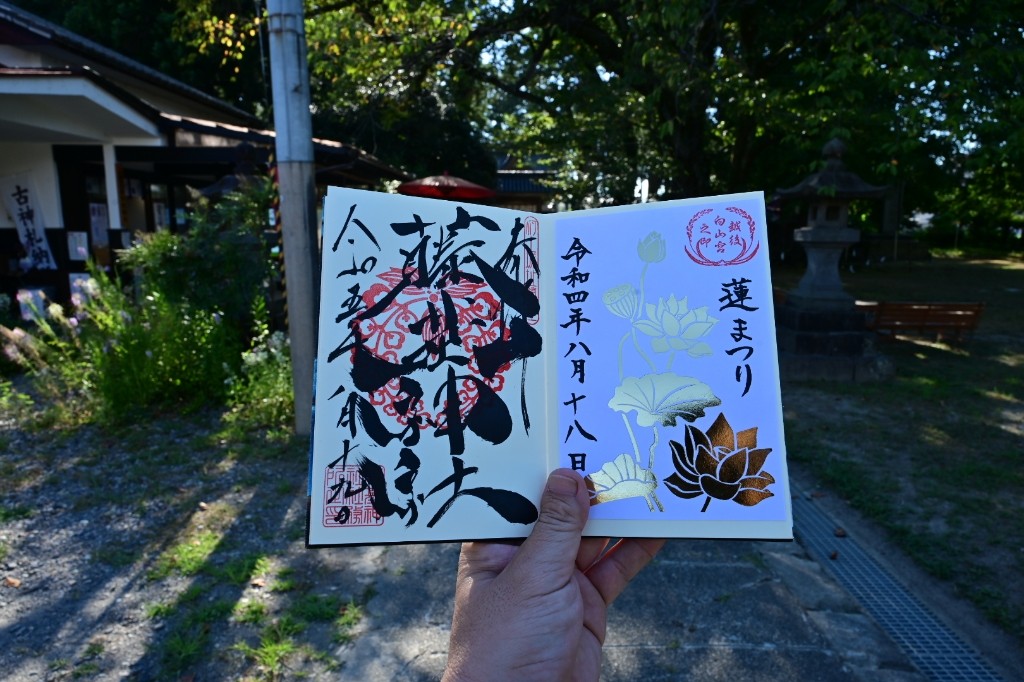 越後
白山宮
之印
蓮まつり
令和四年八月十八日
奉拝
藤基神社
令和五年八月十九日
古神札納